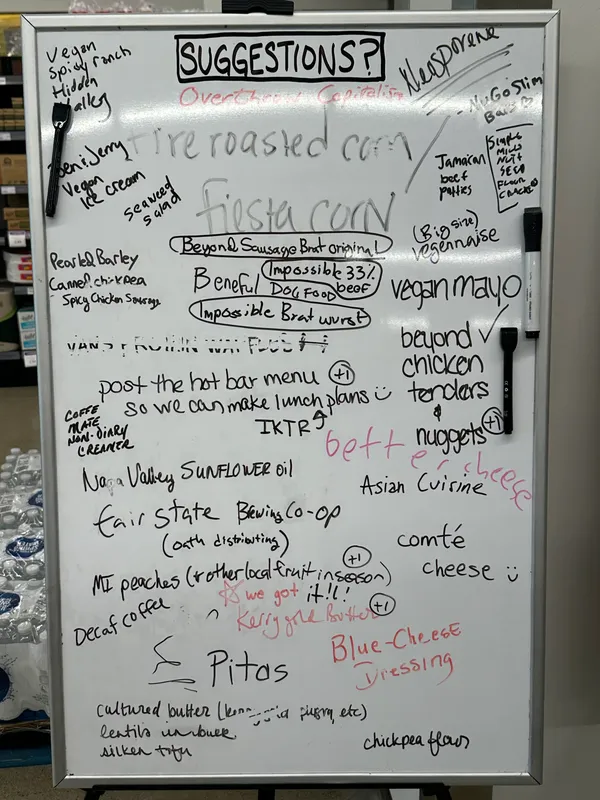 SUGGESTIONS?
Overthrow Capitalism
Vegan
Spicy ranch
Hidden
Valley
Neosporene
NuGo Slim
Bars
fire roasted corn
Simple
Mills
Nut &
Seed
Flour
Crackers
Jamaican
beef
patties
Ben & Jerry
Vegan
Ice cream
Seaweed
Salad
fiesta corn
(Big size)
vegennaise
Beyond Sausage Brat original
Pearled Barley
Canned chickpea
Spicy Chicken Sausage
Beneful
Dog Food
Impossible 33%
beef
Impossible Brat wurst
vegan mayo
beyond
chicken
tenders
&
nuggets +1
post the hot bar menu +1
so we can make lunch plans
IKTR
COFFE
MATE
NON-DIARY
CREAMER
better cheese
Napa Valley SUNFLOWER oil
Asian Cuisine
fair State Brewing Co-op
(oath distributing)
comté
cheese
MI peaches (+ other local fruit in season) +1
we got it!!!
Kerrygold Butter +1
Decaf coffee
Pitas
Blue-Cheese
Dressing
cultured butter
lentils in bulk
silken tofu
chickpea flour